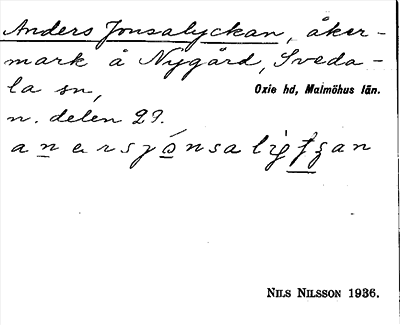 Anders Jonsalyckan, åker-
mark å Nygård, Sveda-
la sn,
Oxie hd, Malmöhus län.
n. delen 29.
NILS NILSSON 1936.